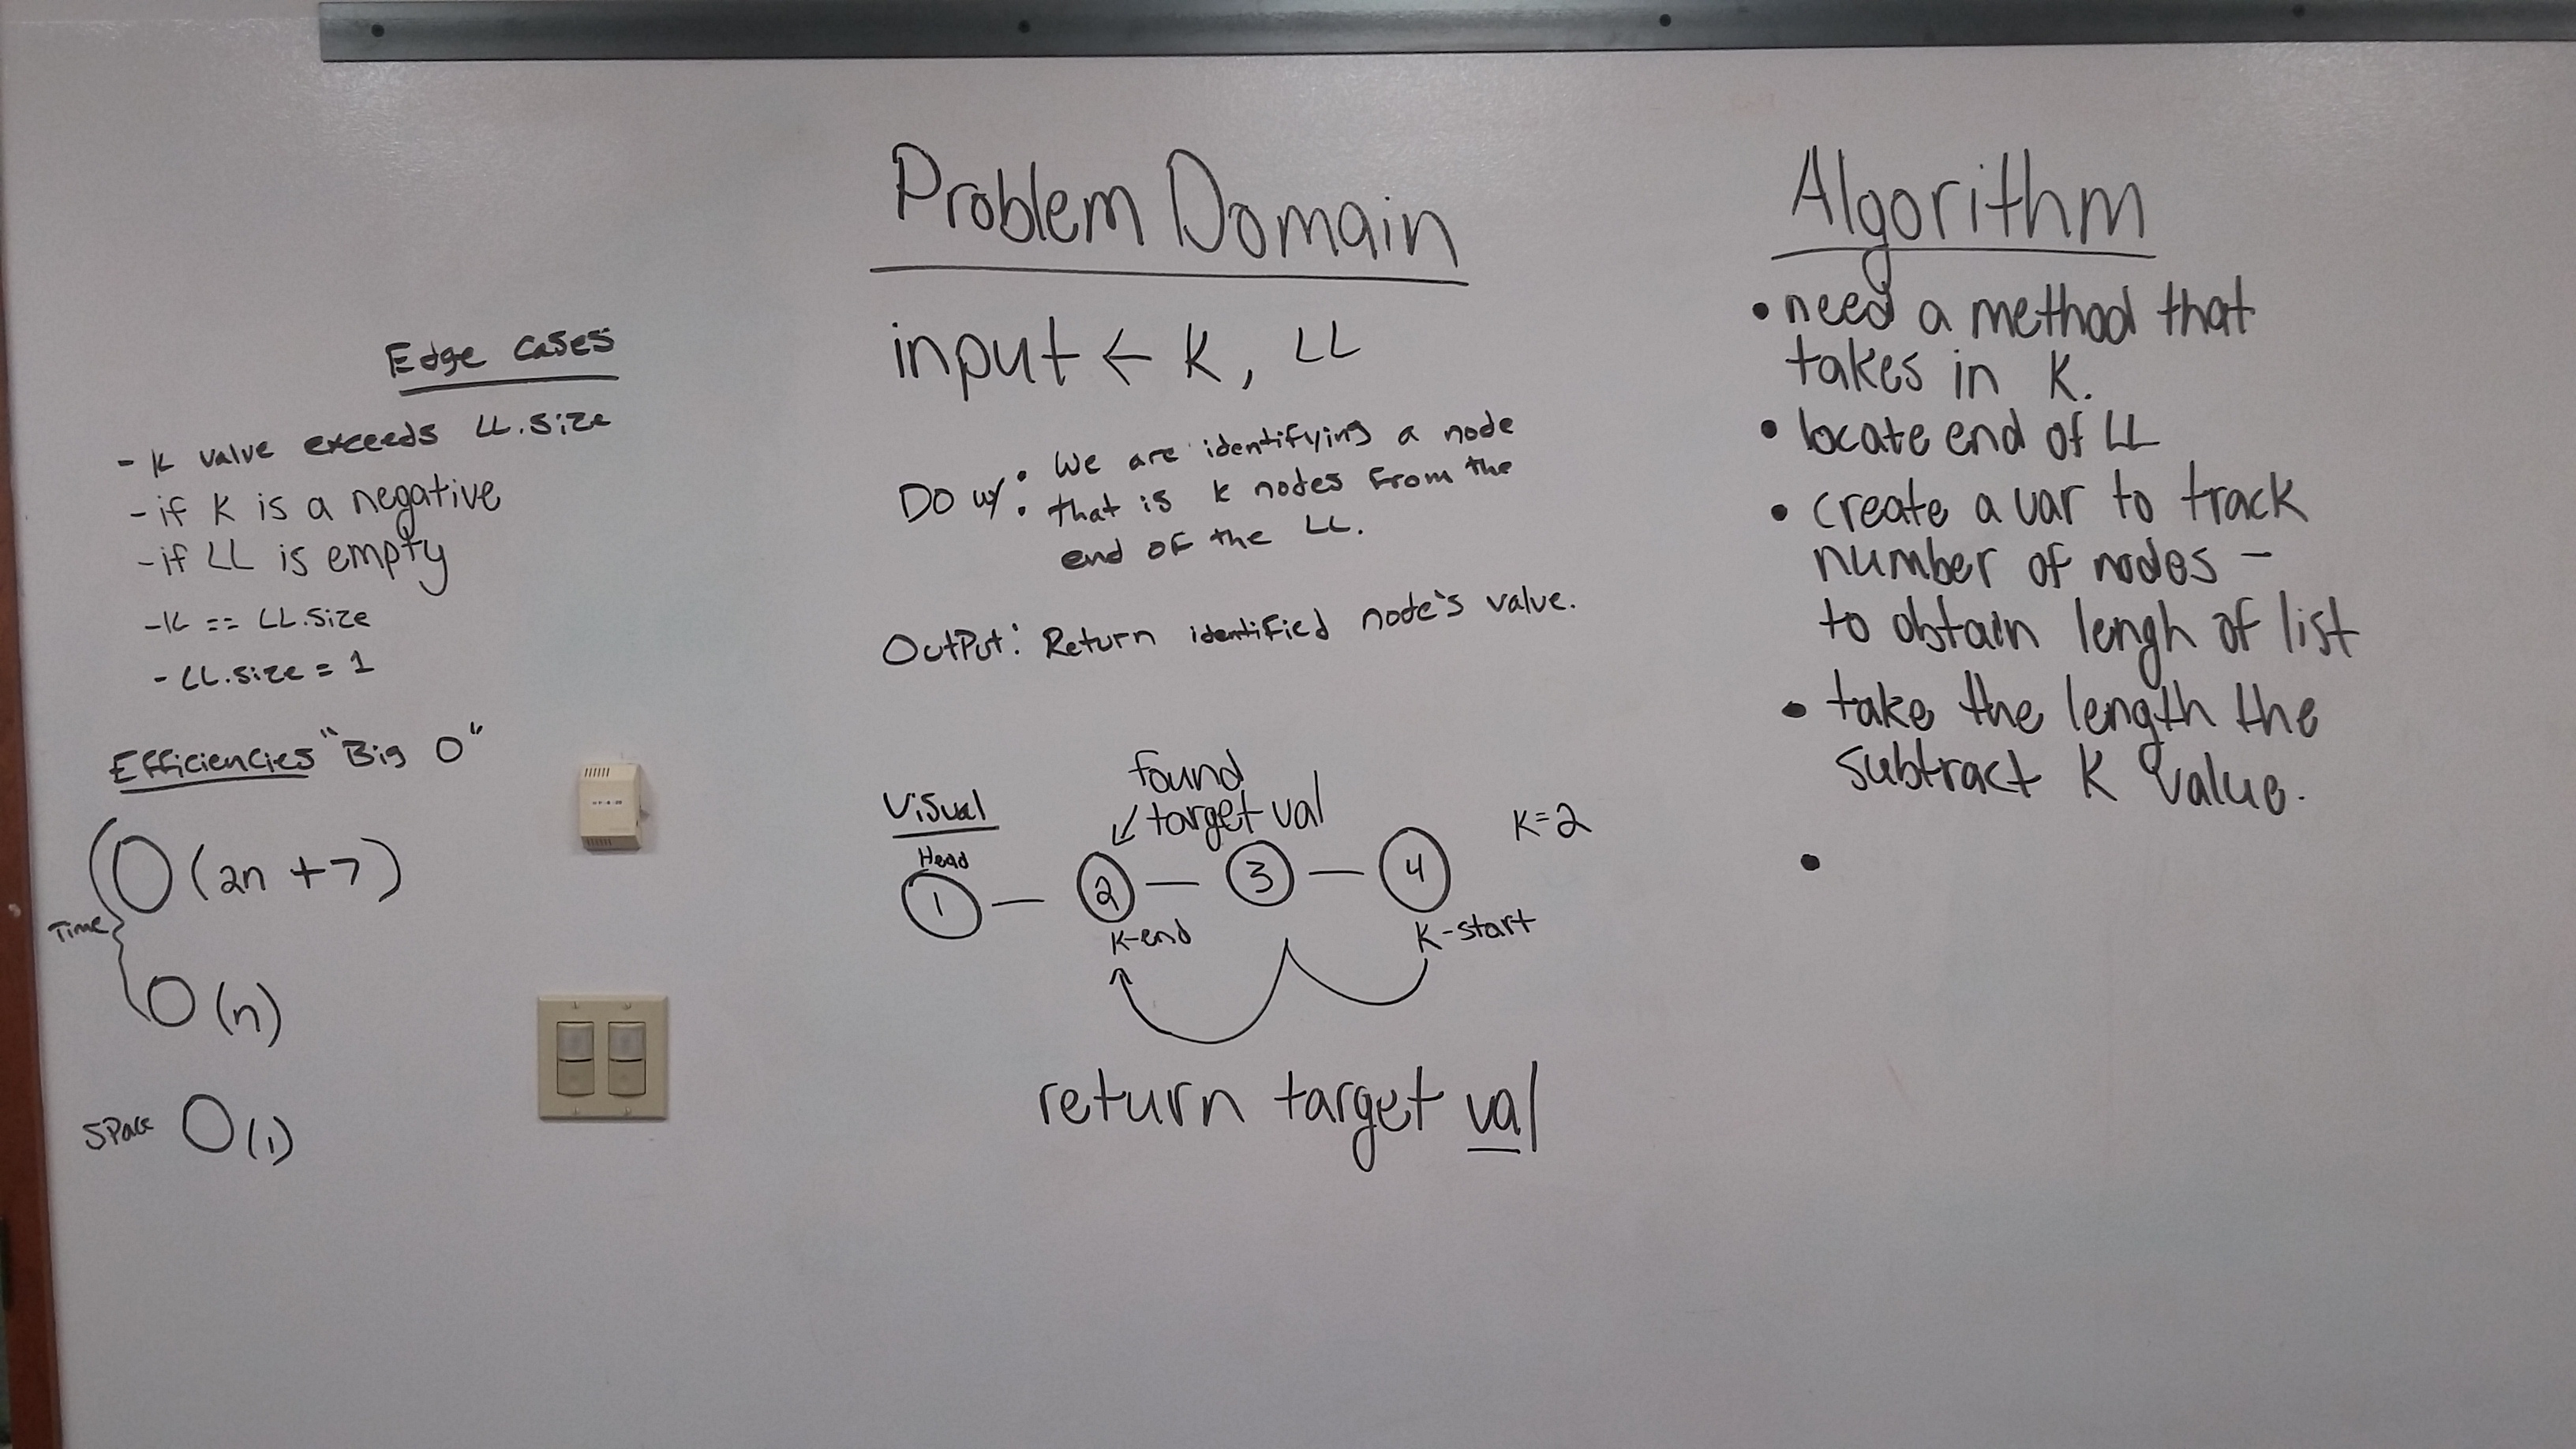 Edge cases
- K value exceeds LL.size
- if K is a negative
- if LL is empty
- K == LL.size
- LL.size = 1
Efficiencies "Big O"
Time
O(2n + 7)
O(n)
Space O(1)
Problem Domain
input ← K, LL
DO w/: We are identifying a node
that is K nodes from the
end of the LL.
Output: Return identified node's value.
Visual
found
target val
K=2
Head
1 — 2 — 3 — 4
K-end
K-start
return target val
Algorithm
• need a method that
takes in K.
• locate end of LL
• create a var to track
number of nodes –
to obtain lengh of list
• take the length the
subtract K value.
•